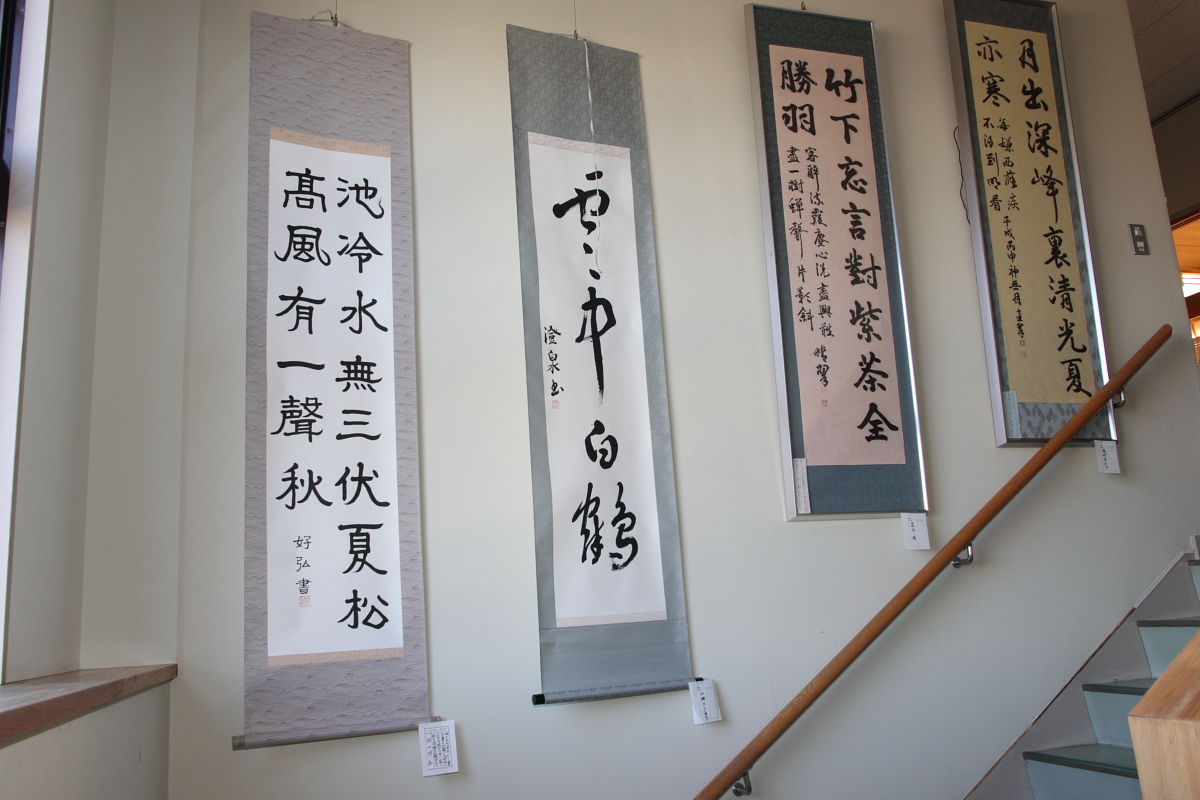 池冷水無三伏夏松
髙風有一聲秋
好弘書
雲中白鶴
澄泉書
竹下忘言對紫茶全
勝羽
客醉流霞塵心洗盡興難
盡一樹蟬聲片影斜
月出深峰裏清光夏
亦寒
每嫌西落疾
不得到明看 平成丙申神無月